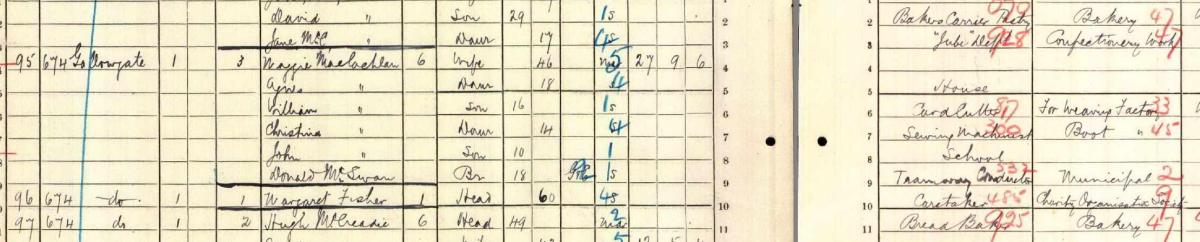 David " Son 29 1s 2 Bakers Carrier Pastry Bakery 47
Jane McC " Daur 17 3 "Jube" Dept Confectionery Work 47
95 674 Gallowgate 1 3 Maggie Maclachlan 6 Wife 46 27 9 6 4
Agnes " Daur 18 5 House
William " Son 16 1s 6 Card Cutter For Weaving Factory 33
Christina " Daur 14 7 Sewing Machinist Boot " 45
John " Son 10 1 8 School
Donald McEwan Br. 18 1s 9 Tramway Conductor 537 Municipal 2
96 674 do 1 1 Margaret Fisher 1 Head 60 4s 10 Caretaker 485 Charity Organisation Society 9
97 674 do 1 2 Hugh McCreadie 6 Head 49 2 11 Bread Baker 925 Bakery 47